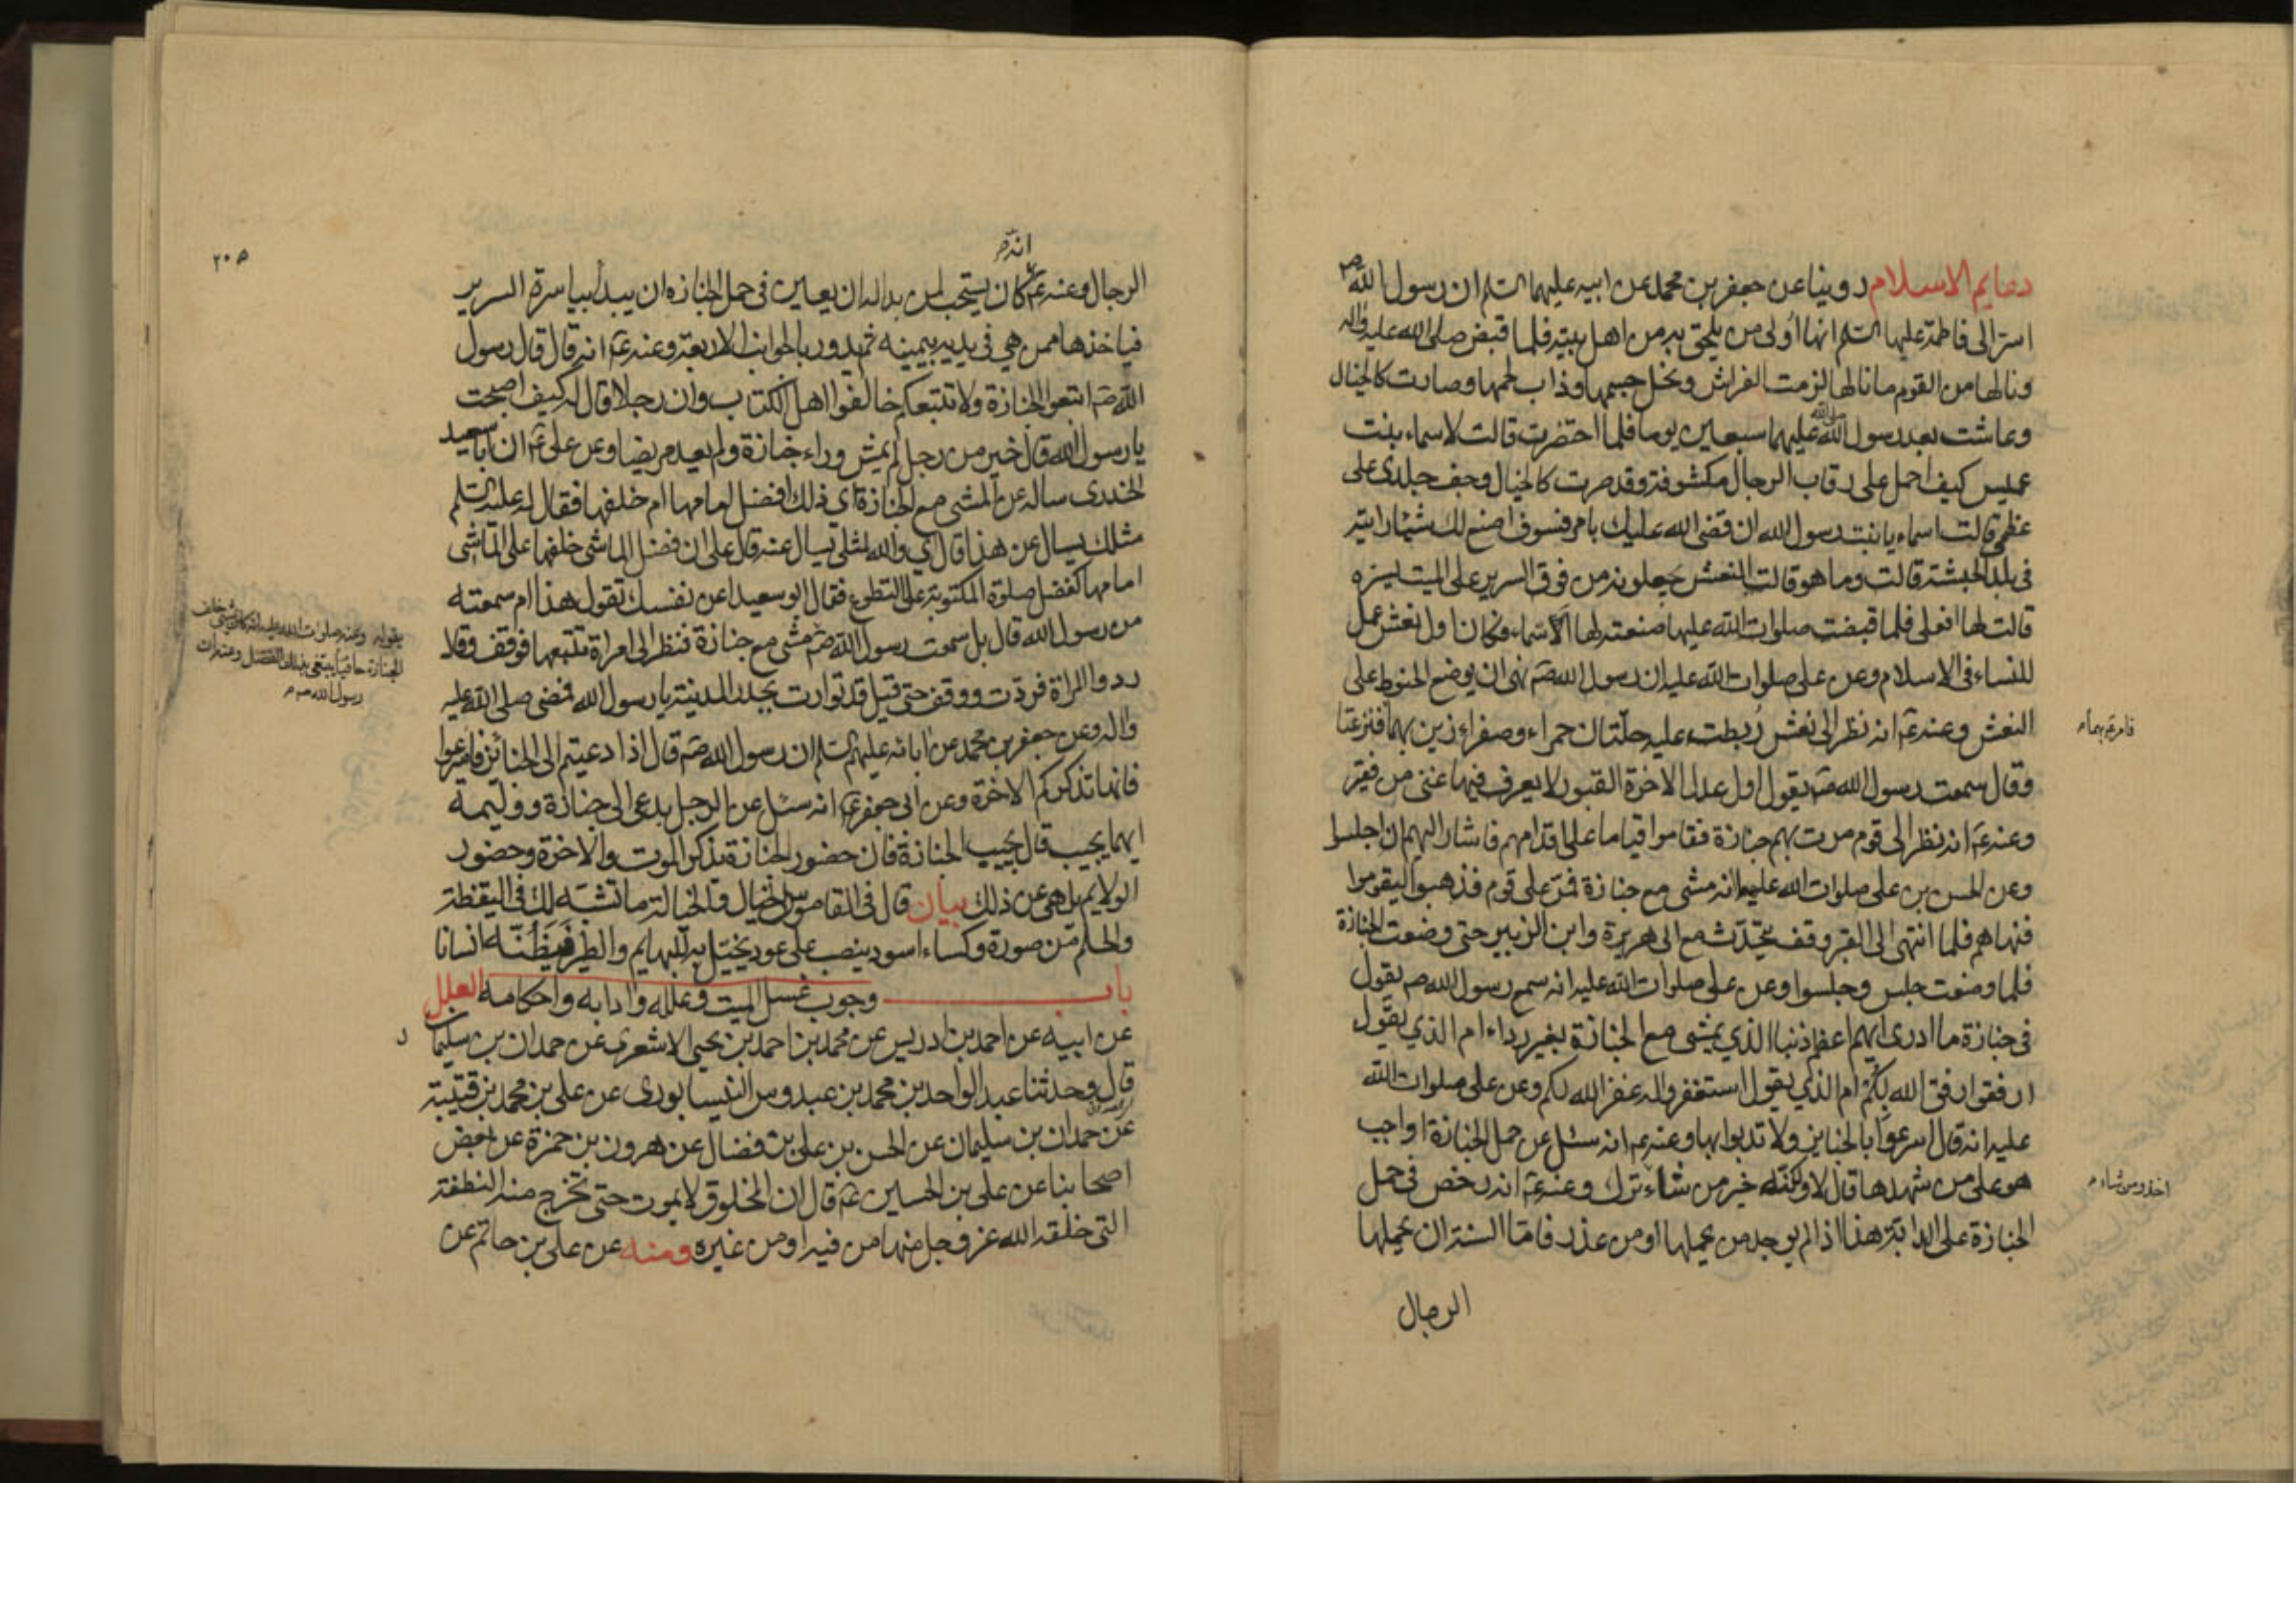 دعايم الاسلام روينا عن جعفر بن محمد عن ابيه عليهما السلم ان رسول الله ص
اسر الى فاطمة عليها السلم انها اولى من يلحق به من اهل بيته فلما قبض صلى الله عليه واله
ونالها من القوم ما نالها لزمت الفراش ونحل جسمها وذاب لحمها وصارت كالخيال
وعاشت بعد رسول الله صلى الله عليهما سبعين يوما فلما احتضرت قالت لاسماء بنت
عميس كيف احمل على رقاب الرجال مكشوفة وقد صرت كالخيال وجف جلدى على
عظمى قالت اسماء يا بنت رسول الله ان قضى الله عليك بامر فسوف اصنع لك شيئا رايته
فى بلد الحبشة قالت وما هو قالت النعش يجعلونه من فوق السرير على الميت يستره
قالت لها افعلى فلما قبضت صلوات الله عليها صنعته لها الاسماء وكان اول نعش عمل
للنساء فى الاسلام وعن على صلوات الله عليه ان رسول الله صم نهى ان يوضع الحنوط على
النعش وعنه عم انه نظر الى نعش ربطت عليه حلتان حمراء وصفراء زين بهما فنزعتا
فامر عم بهما م
وقال سمعت رسول الله صم يقول اول عدل الاخرة القبور لا يعرف فيها غنى من فقير
وعنه عم انه نظر الى قوم مرت بهم جنازة فقاموا قياما على اقدامهم فاشار اليهم ان اجلسوا
وعن الحسن بن على صلوات الله عليهما انه مشى مع جنازة فمر على قوم فذهبوا ليقوموا
فنهاهم فلما انتهى الى القبر وقف يتحدث مع ابى هريرة وابن الزبير حتى وضعت الجنازة
فلما وضعت جلس وجلسوا وعن على صلوات الله عليه انه سمع رسول الله صم يقول
فى جنازة ما ادرى ايهم اعظم ذنبا الذي يمشى مع الجنازة بغير رداء ام الذي يقول
ارفقوا رفق الله بكم ام الذي يقول استغفروا له غفر الله لكم وعن على صلوات الله
عليه انه قال اسرعوا بالجنايز ولا تدبوا بها وعنه عم انه سئل عن حمل الجنازة اواجب
هو على من شهدها قال لا ولكنه خير من شاء ترك وعنه عم انه رخص فى حمل
اخذ ومن شاء م
الجنازة على الدابة هذا اذا لم يوجد من يحملها او من عذر فاما السنة ان يحملها
الرجال
٢٠٥
انه
الرجال وعنه عم كان يستحب لمن بدا له ان يعين فى حمل الجنازه ان يبدأ بياسرة السرير
فياخذها ممن هي فى يديه بيمينه ثم يدور بالجوانب الاربعة وعنه عم انه قال قال رسول
الله صم اتبعوا الجنازة ولا تتبعكم خالفوا اهل الكتاب وان رجلا قال له كيف اصبحت
يا رسول الله قال خير من رجل لم يمش وراء جنازة ولم يعد مريضا وعن على عم ان ابا سعيد
الخدرى ساله عن المشى مع الجنازة اي ذلك افضل امامها ام خلفها فقال له عليه السلم
مثلك يسال عن هذا قال اي والله لمثلى يسال عنه قال على ان فضل الماشى خلفها على الماشى
امامها كفضل صلوة المكتوبة على التطوع فقال ابو سعيد اعن نفسك تقول هذا ام سمعته
من رسول الله قال بل سمعت رسول الله صم مشى مع جنازة فنظر الى امراة تتبعها فوقف وقال
يقوله وعنه صلوات الله عليه انه كان يمشى خلف
الجنازة حافيا يبتغى بذلك الفضل وعنه ان
رسول الله صم م
ردوا المراة فردت ووقف حتى قيل قد توارت بجدر المدينة يا رسول الله فمضى صلى الله عليه
واله وعن جعفر بن محمد عن ابائه عليهم السلم ان رسول الله صم قال اذا دعيتم الى الجنائز فاسرعوا
فانها تذكركم الاخرة وعن ابى جعفر عم انه سئل عن الرجل يدعى الى جنازة ووليمة
ايهما يجيب قال يجيب الجنازة فان حضور الجنازة يذكر الموت والاخرة وحضور
الولايم يلهى عن ذلك بيان قال فى القاموس الخيال والخيالة ما تشبه لك فى اليقظة
والحلم من صورة وكساء اسود ينصب على عود يخيل به للبهايم والطير فيظنه انسانا
باب وجوب غسل الميت وعلله وادابه واحكامه العلل
عن ابيه عن احمد بن ادريس عن محمد بن احمد بن يحيى الاشعرى عن حمدان بن سليمان
قال وحدثنا عبد الواحد بن محمد بن عبدوس النيسابورى عن على بن محمد بن قتيبة
عن حمدان بن سليمان عن الحسن بن على بن فضال عن هرون بن حمزة عن بعض
اصحابنا عن على بن الحسين عم قال ان المخلوق لا يموت حتى تخرج منه النطفة
التى خلقه الله عز وجل منها من فيه او من غيره ومنه عن على بن حاتم عن